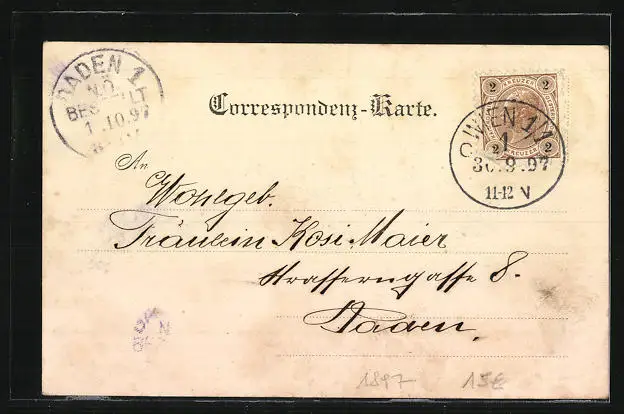 BADEN 1
N.Ö.
BESTELLT
1.10.97
Correspondenz-Karte.
2 KREUZER 2
2 KREUZER 2
WIEN 1/1
1
30.9.97
11-12 V
An
Wohlgeb.
Fräulein Rosi Maier
Strasserngasse 8.
Baden.
1897 15€